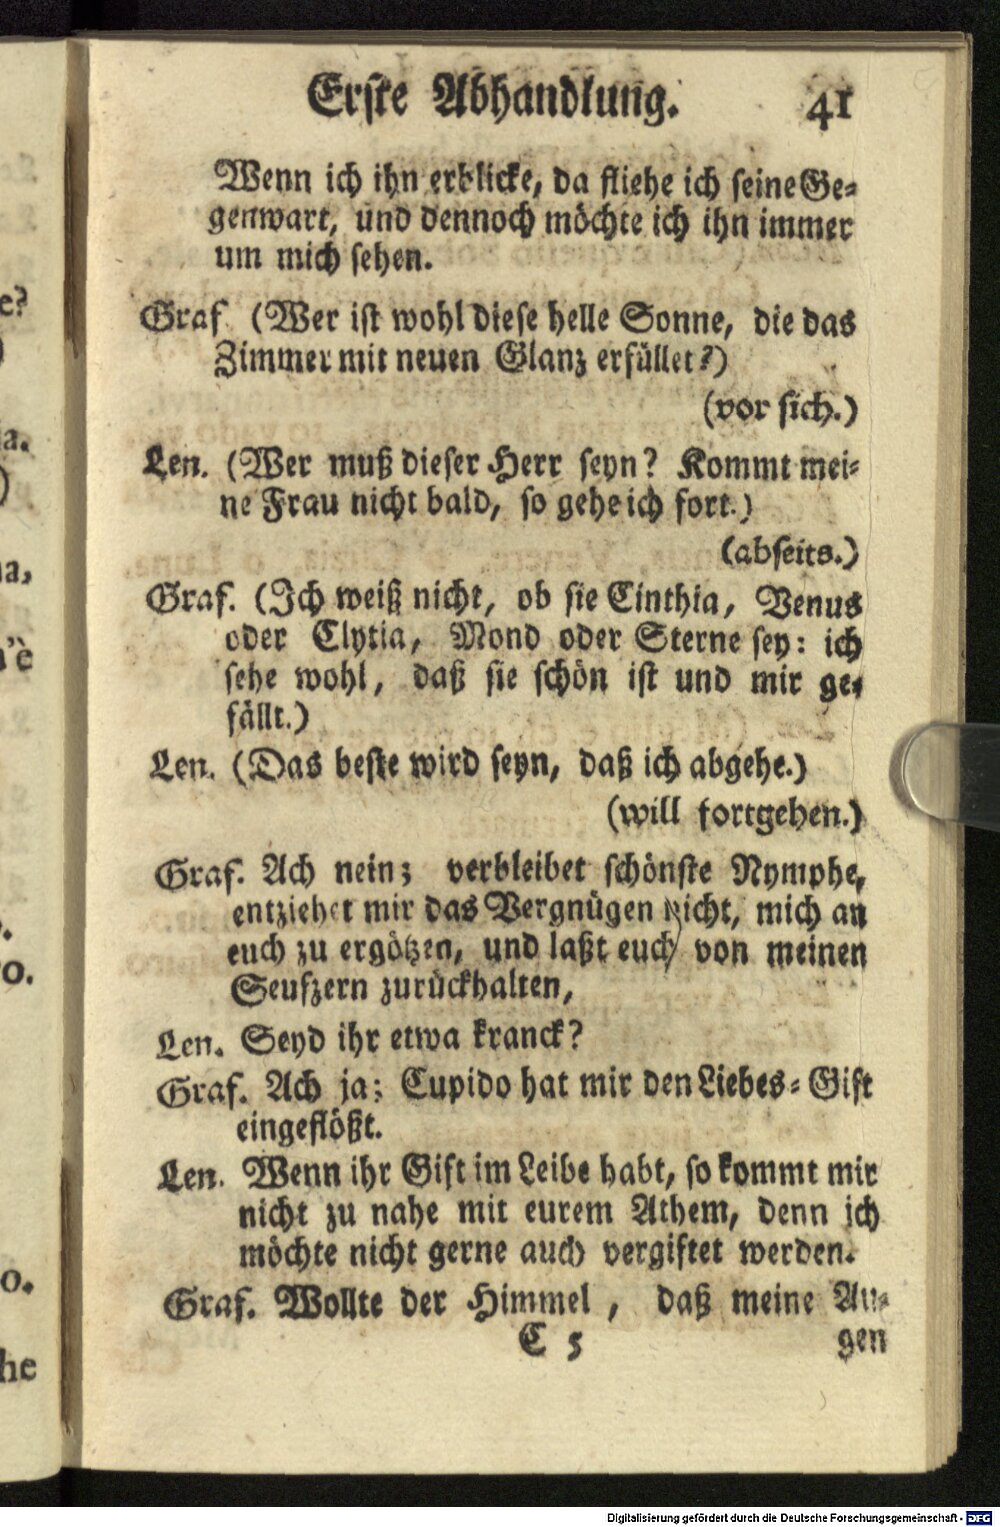 Erste Abhandlung. 41
Wenn ich ihn erblicke, da fliehe ich seine Ge-
genwart, und dennoch möchte ich ihn immer
um mich sehen.
Graf (Wer ist wohl diese helle Sonne, die das
Zimmer mit neuen Glanz erfüllet?)
(vor sich.)
Len. (Wer muß dieser Herr seyn? Kommt mei-
ne Frau nicht bald, so gehe ich fort.)
(abseits.)
Graf. (Ich weiß nicht, ob sie Cinthia, Venus
oder Clytia, Mond oder Sterne sey: ich
sehe wohl, daß sie schön ist und mir ge-
fällt.)
Len. (Das beste wird seyn, daß ich abgehe.)
(will fortgehen.)
Graf. Ach nein; verbleibet schönste Nymphe,
entziehet mir das Vergnügen nicht, mich an
euch zu ergötzen, und laßt euch von meinen
Seufzern zurückhalten,
Len. Seyd ihr etwa kranck?
Graf. Ach ja; Cupido hat mir den Liebes-Gift
eingeflößt.
Len. Wenn ihr Gift im Leibe habt, so kommt mir
nicht zu nahe mit eurem Athem, denn ich
möchte nicht gerne auch vergiftet werden.
Graf. Wollte der Himmel, daß meine Au-
C 5 gen
e?
)
a.
)
na,
n'è
o.
o.
he
Digitalisierung gefördert durch die Deutsche Forschungsgemeinschaft - DFG